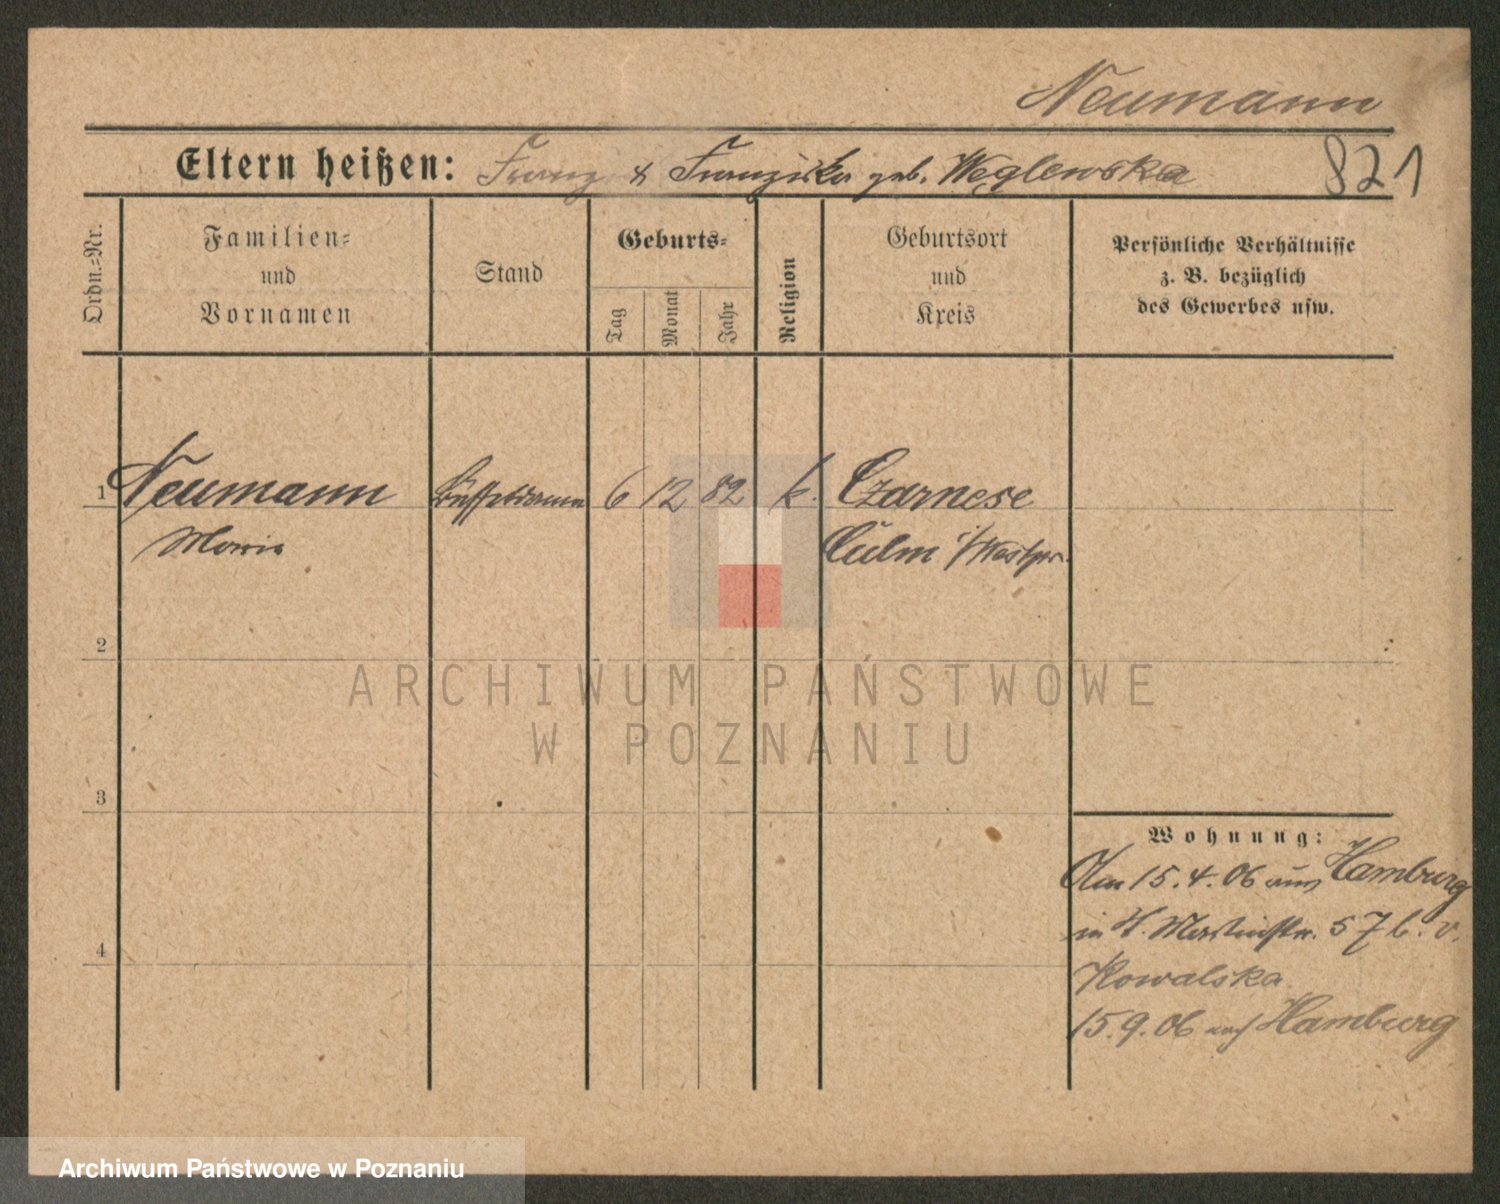 Neumann
Eltern heißen: Franz & Franziska geb. Węglewska 821
Ordn.-Nr.
Familien-
und
Vornamen
Stand
Geburts-
Tag
Monat
Jahr
Religion
Geburtsort
und
Kreis
Persönliche Verhältnisse
z. B. bezüglich
des Gewerbes usw.
1 Neumann 6 12 82 k. Czarnese
Maria Culm i/Westpr.
2
ARCHIWUM PAŃSTWOWE
W POZNANIU
3
Wohnung:
Am 15.4.06 aus Hamburg
in St. Martinstr. 57 b. v.
4
Kowalska
15.9.06 nach Hamburg
Archiwum Państwowe w Poznaniu